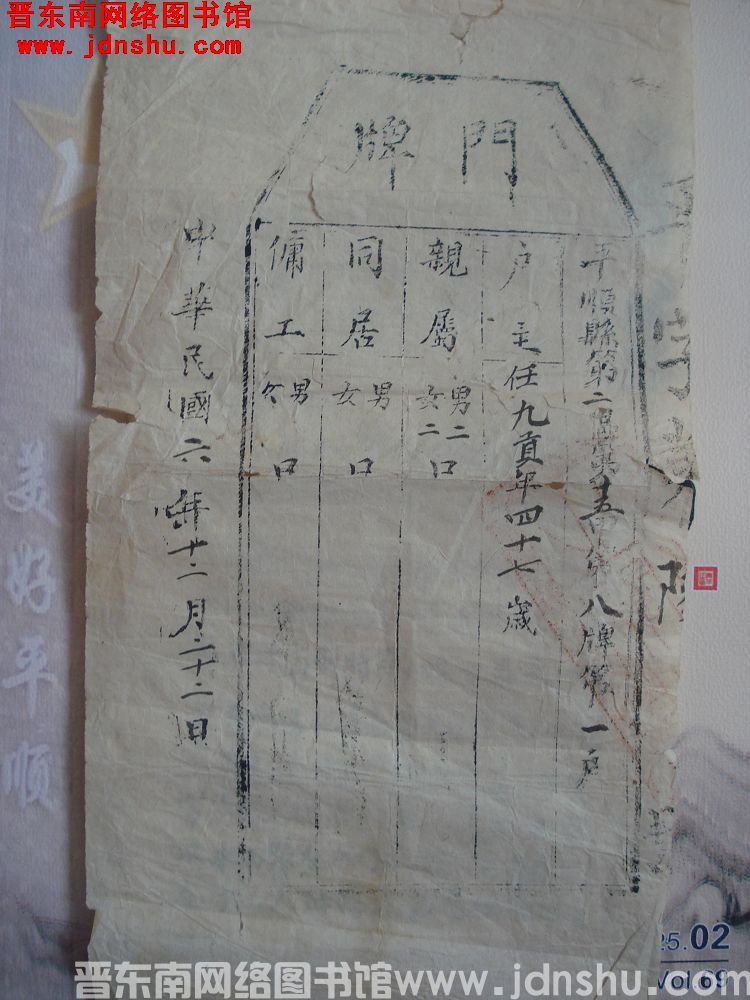 晋东南网络图书馆
www.jdnshu.com
門牌
平順縣第二區第十五 第八牌第一户
户主任九貢年四十七歲
親屬男二女二口
同居男女口
傭工男女口
中華民國六年十二月二十二日
美好平顺
25.02
Vol.69
晋东南网络图书馆www.jdnshu.com